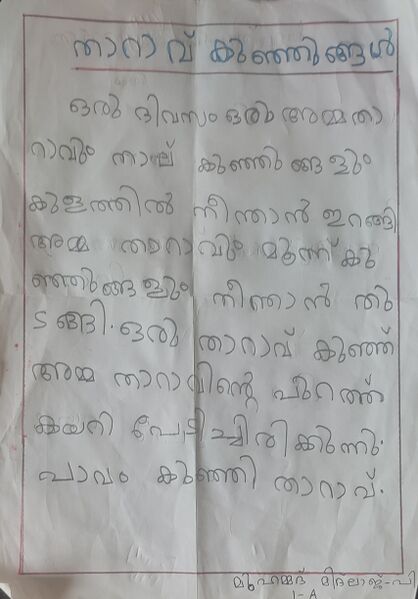 താറാവ് കുഞ്ഞുങ്ങൾ
ഒരു ദിവസം ഒരു അമ്മതാ
റാവും നാല് കുഞ്ഞുങ്ങളും
കുളത്തിൽ നീന്താൻ ഇറങ്ങി
അമ്മ താറാവും മൂന്ന് കു
ഞ്ഞുങ്ങളും നീന്താൻ തു
ടങ്ങി. ഒരു താറാവ് കുഞ്ഞ്
അമ്മ താറാവിന്റെ പുറത്ത്
കയറി പേടിച്ചിരിക്കുന്നു.
പാവം കുഞ്ഞി താറാവ്.
മുഹമ്മദ് മിദ്‌ലാജ്-പി
1-A